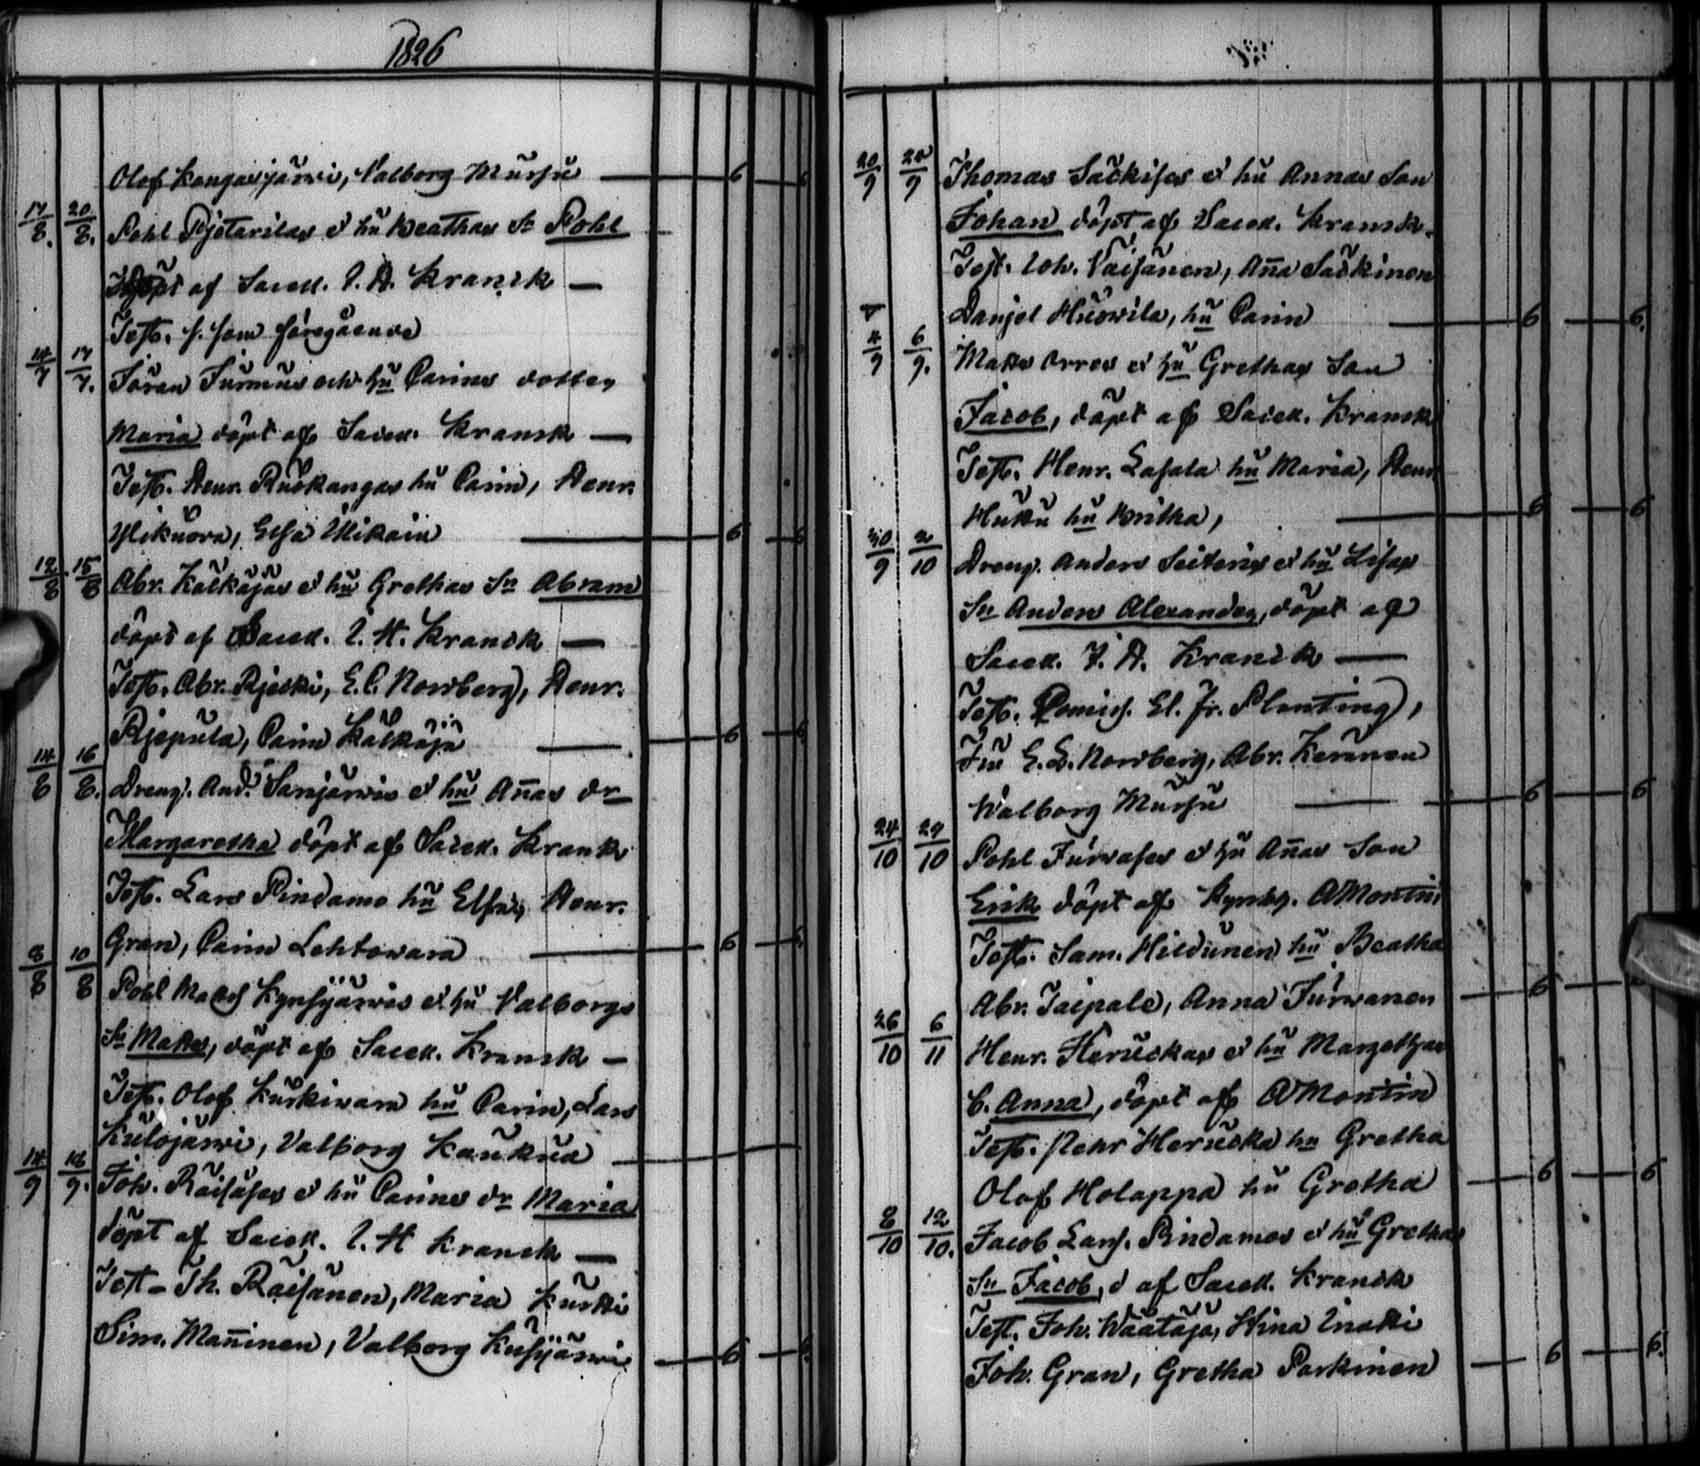 1826
Olof Kangasjärvi, Valborg Mursu — 6 — 6
17/8. 20/8. Pohl Pjetarilas & hū Beathas Sn Pohl —
döpt af Sacell. I. H. Kranck —
Test. s. som föregående
14/7 17/7. Göran Surmus och hū Carins dotter
Maria döpt af Sacell. Kranck —
Test. Henr. Ruokangas hū Carin, Henr.
Ylikuora, Elsa Mikain — 6 — 6
12/8 15/8 Abr. Kälkäjäs & hū Grethas Sn Abram
döpt af Sacell. I. H. Kranck —
Test. Abr. Pjeski, E. C. Norrberg, Henr.
Pjepula, Carin Kälkäjä — 6 — 6
14/8 16/8. Dreng. And. Sarijärvis & hū Añas dr
Margaretha döpt af Sacell. Kranck
Test. Lars Pindamo hū Elsa, Henr.
Gran, Carin Lehtovara — 6 — 6
8/8 10/8 Pohl Matts Kynsijärvis & hū Valborgs
Sn Matts, döpt af Sacell. Kranck —
Test. Olof Kurkivara hū Carin, Lars
Kulojärvi, Valborg Kaukua —
14/9 16/9. Joh. Räisäses & hū Carins dr Maria
döpt af Sacell. I. H Kranck —
Test - Th. Räisänen, Maria Kurki
Sim. Mañinen, Valborg Kusijärvi — 6 — 6
20/9 24/9 Thomas Säckises & hū Annas Son
Johan döpt af Sacell. Kranck.
Test. Joh. Väisänen, Aña Säckinen
Danjel Huovila, hū Carin — 6 — 6.
4/9 6/9. Matts Orres & hū Grethas Son
Jacob, döpt af Sacell. Kranck
Test. Henr. Lasala hū Maria, Henr
Huku hū Britha, — 6 — 6
30/9 2/10 Dreng. Anders Seiteris & hū Lisas
Sn Anders Alexander, döpt af
Sacell. I. H. Kranck —
Test. Comiss. El. Fr. Planting,
Fru E. L. Norrberg, Abr. Keränen
Walborg Mursu — 6 — 6
24/10 29/10 Pohl Jurvases & hū Añas Son
Erik döpt af Kyrkhh. AMontin
Test. Sam. Hildunen hū Beatha
Abr. Taipale, Anna Jurvanen — 6 — 6
26/10 6/11 Henr. Heruckas & hū Margethas
b. Anna, döpt af AMontin
Test. Pehr Herucka hū Gretha
Olof Holappa hū Gretha — 6 — 6
8/10 12/10. Jacob Lars. Pindamos & hū Grethas
Sn Jacob, d af Sacell. Kranck
Test. Joh. Wäätäjä, Stina Inski
Joh. Gran, Gretha Parkinen — 6 — 6.